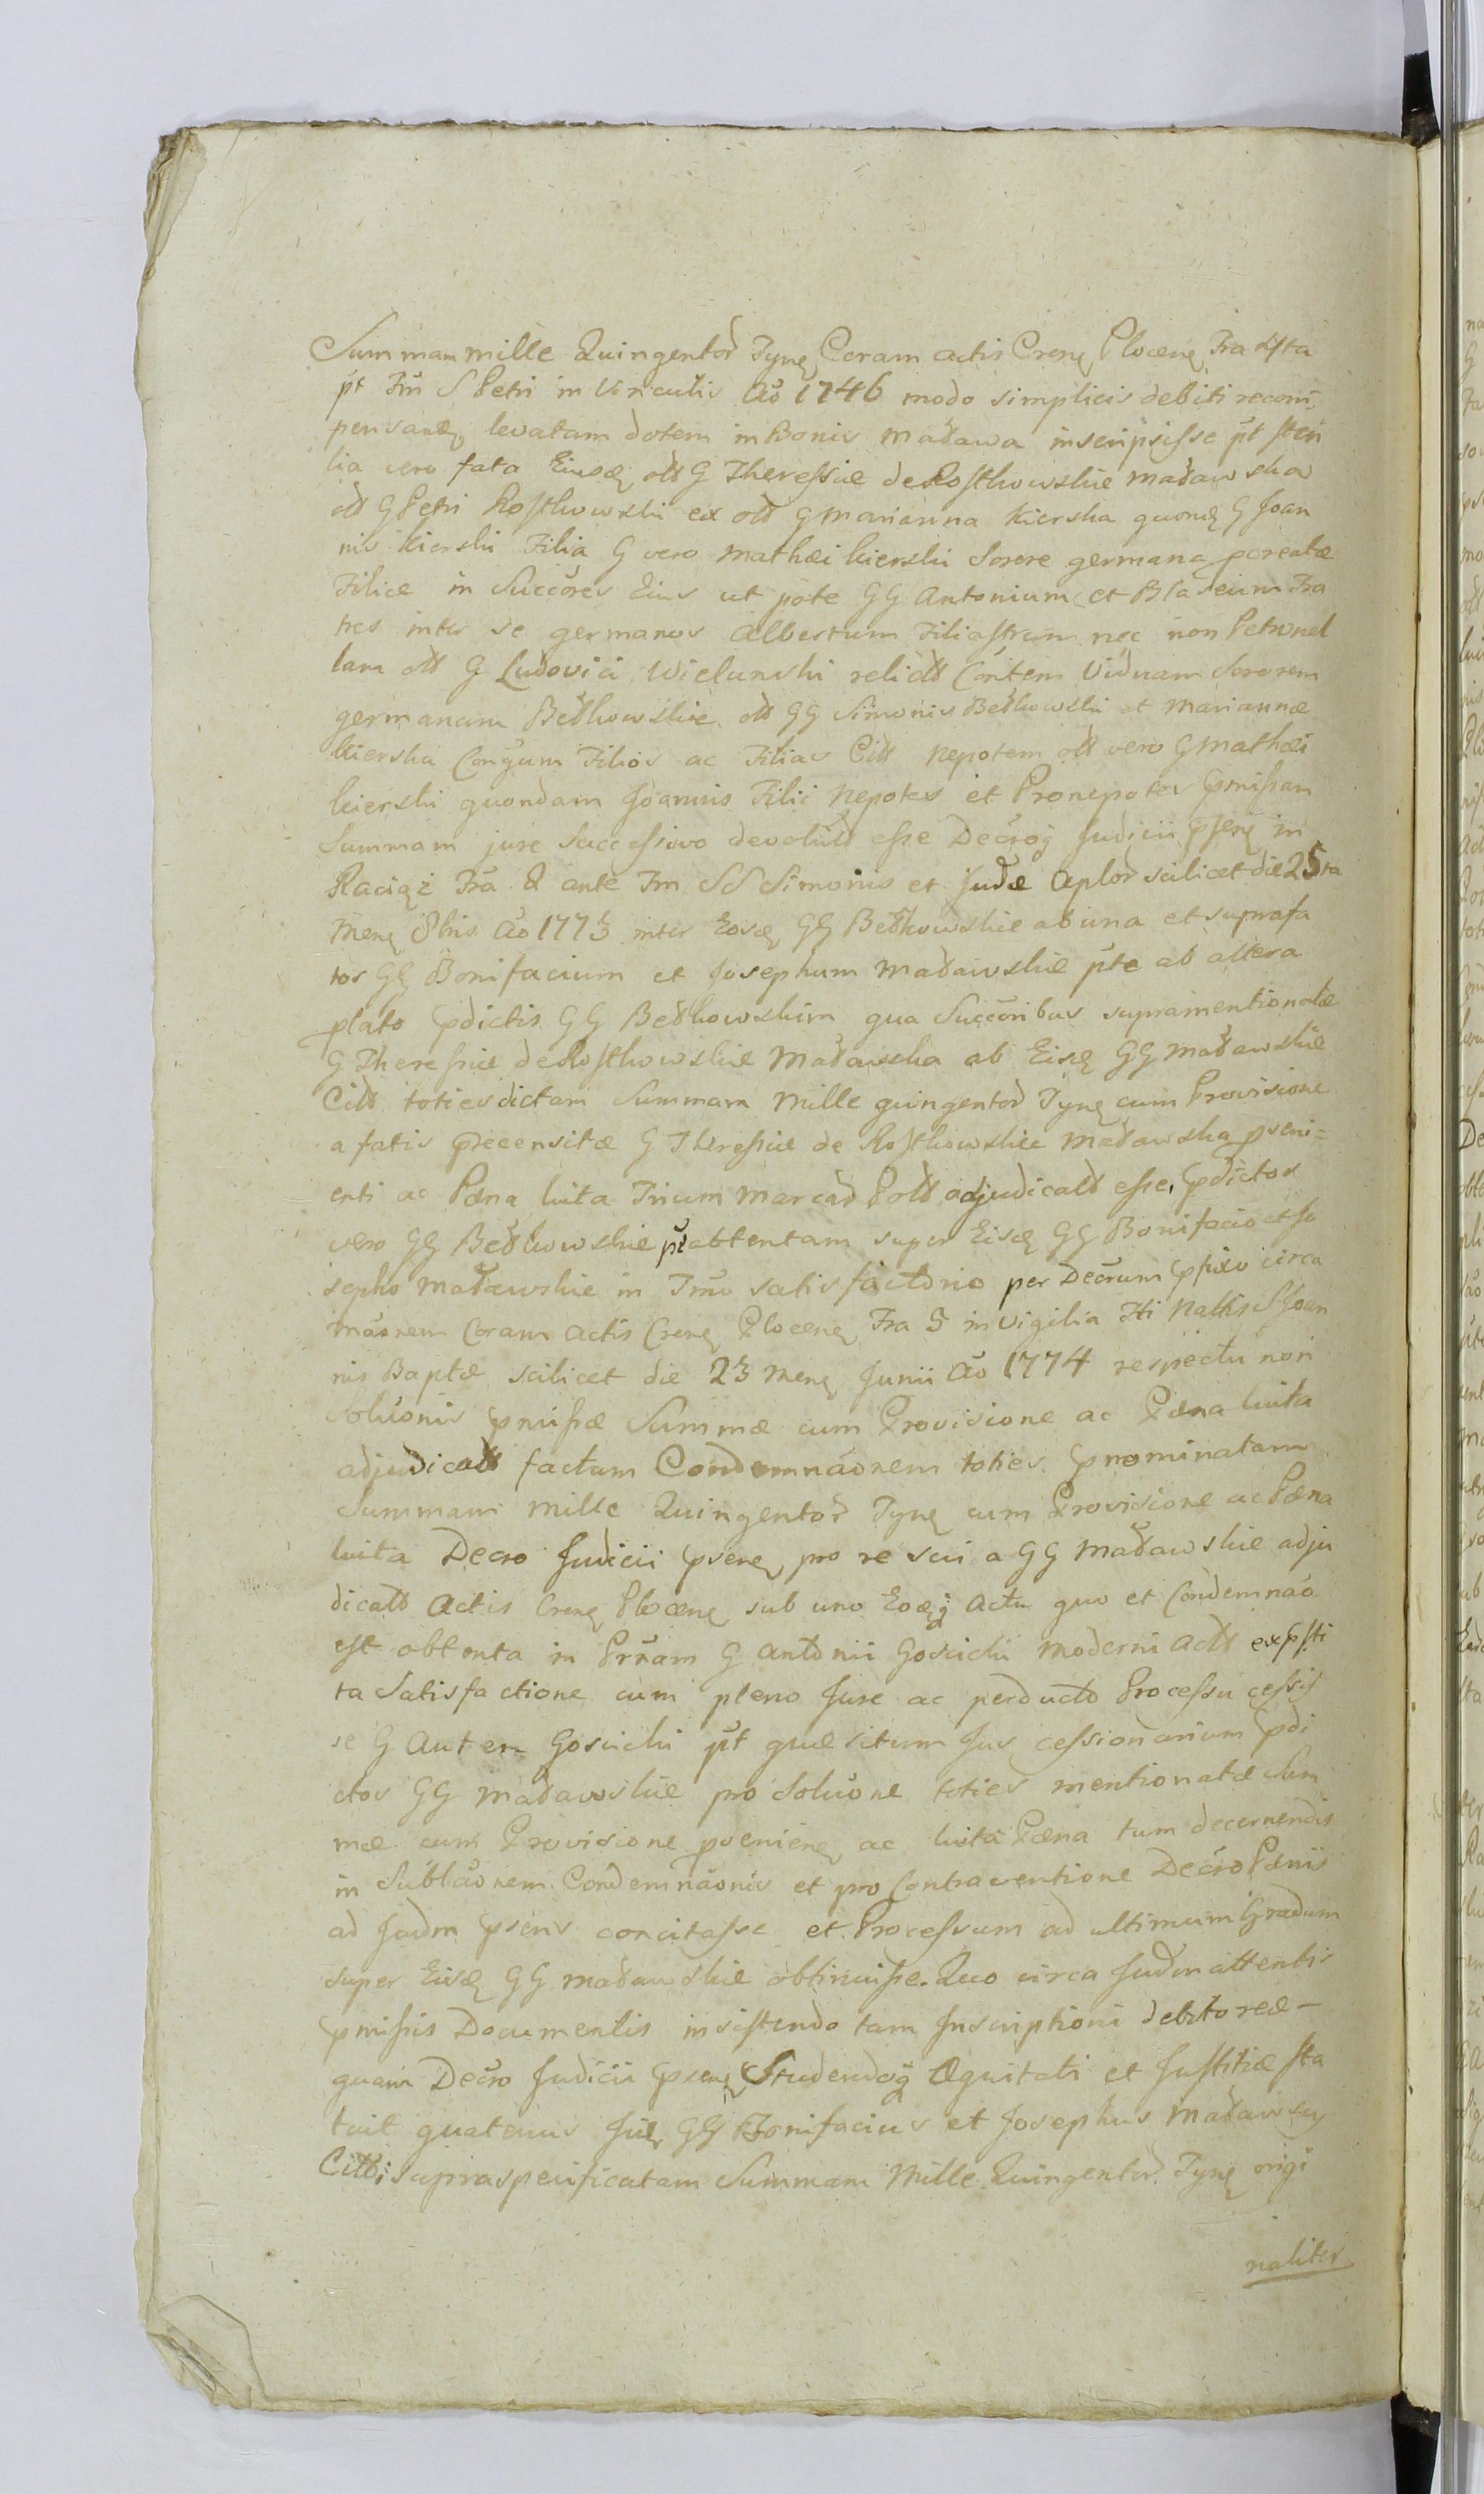 Summam mille Quingentor Tynę Coram actis Crenę Plocenę Fra 4ta
pt Fm S Petri in Vinculis Ao 1746 modo simplicis debiti recom
pensanę levatam dotem in Bonis Madawa inscripsisse pt steri
lia vero fata Eiusdę olt G Theressiæ de Rostkowskie Madawska
olt G Petri Rostkowski ex olt G Marianna Kierska quondę G Joan
nis Kierski Filia G vero Mathæi Kierski Sorore germana pcreatæ
Filiæ in Succores Eius ut pote GG Antonium et Blaseium Fra
tres inter se germanos Albertum Filiastrum nec non Petronel
lam olt G Ludovici Wielunski relict Contem Viduam Sororem
germanam Bedkowskie olt GG Simonis Bedkowski et Mariannæ
Kierska Conjgum Filios ac Filias Citt Nepotem olt vero G Mathæi
Kierski quondam Joannis Filii Nepotes et Pronepotes pmissam
Summam jure Successivo devolut esse Decroq Judicii psenę in
Raciąż Fra 2 ante Fm SS Simonis et Judæ Aplor scilicet die 25ta
Menę 8bris Ao 1773 inter Eosdę GG Bedkowskie ab una et suprafa
tos GG Bonifacium et Josephum Madawskie pte ab altera
plato pdictis GG Bedkowskim qua Succoribus supramentionatæ
G Theressiæ de Rostkowskie Madawska ab Eisdę GG Madawskie
Citt toties dictam Summam Mille quingentor Tynę cum Provisione
a fatis precensitæ G Theressiæ de Rostkowskie Madawska pveni=
enti ac Pæna luita Trium Marcar Polt adjudicatt esse, pdictos
vero GG Bedkowskie pt obtentam super Eisdę GG Bonifacio et Jo
sepho Madawskie in Fmo satisfactorio per Decrum pfixo circa
maonem Coram Actis Crenę Plocenę Fra 5 in Vigilia Fti Nattis S Joan
nis Baptæ scilicet die 23 Menę Junii Ao 1774 respectu non
Soluonis pmissæ Summæ cum Provisione ac Pæna luita
adjudicatt factam Condemnaonem toties pnominatam
Summam Mille Quingentor Tynę cum Provisione ac Pæna
luita Decro Judicii psenę pro re sui a GG Madawskie adju
dicatt Actis Crenę Plocenę sub uno Eodęq Actu quo et Condemnao
est obtenta in Prnam G Antonii Goscicki moderni Actt expsti
ta Satisfactione cum pleno Jure ac perducto Processu cessis
se G Autem Goscicki pt quæsitum Jus cessionarium pdi
ctos GG Madawskie pro Soluone toties mentionatæ Sum
mæ cum Provisione pvenienę ac luita Pæna tum decernendis
in Sublaonem Condemnaonis et pro Contraventione Decro Pænis
ad Judm psens concitasse et Processum ad ultimum Gradum
super Eisdę GG Madawskie obtinuisse. Quo circa Judm attentis
pmissis Documentis insistendo tam Inscriptioni debitoreæ-
quam Decro Judicii psenę Studendoq Æquitati et Justitiæ sta
tuit quatenus GG Bonifacius et Josephus Madawscy
Citti supraspecificatam Summam Mille Quingentor Tynę origi
naliter